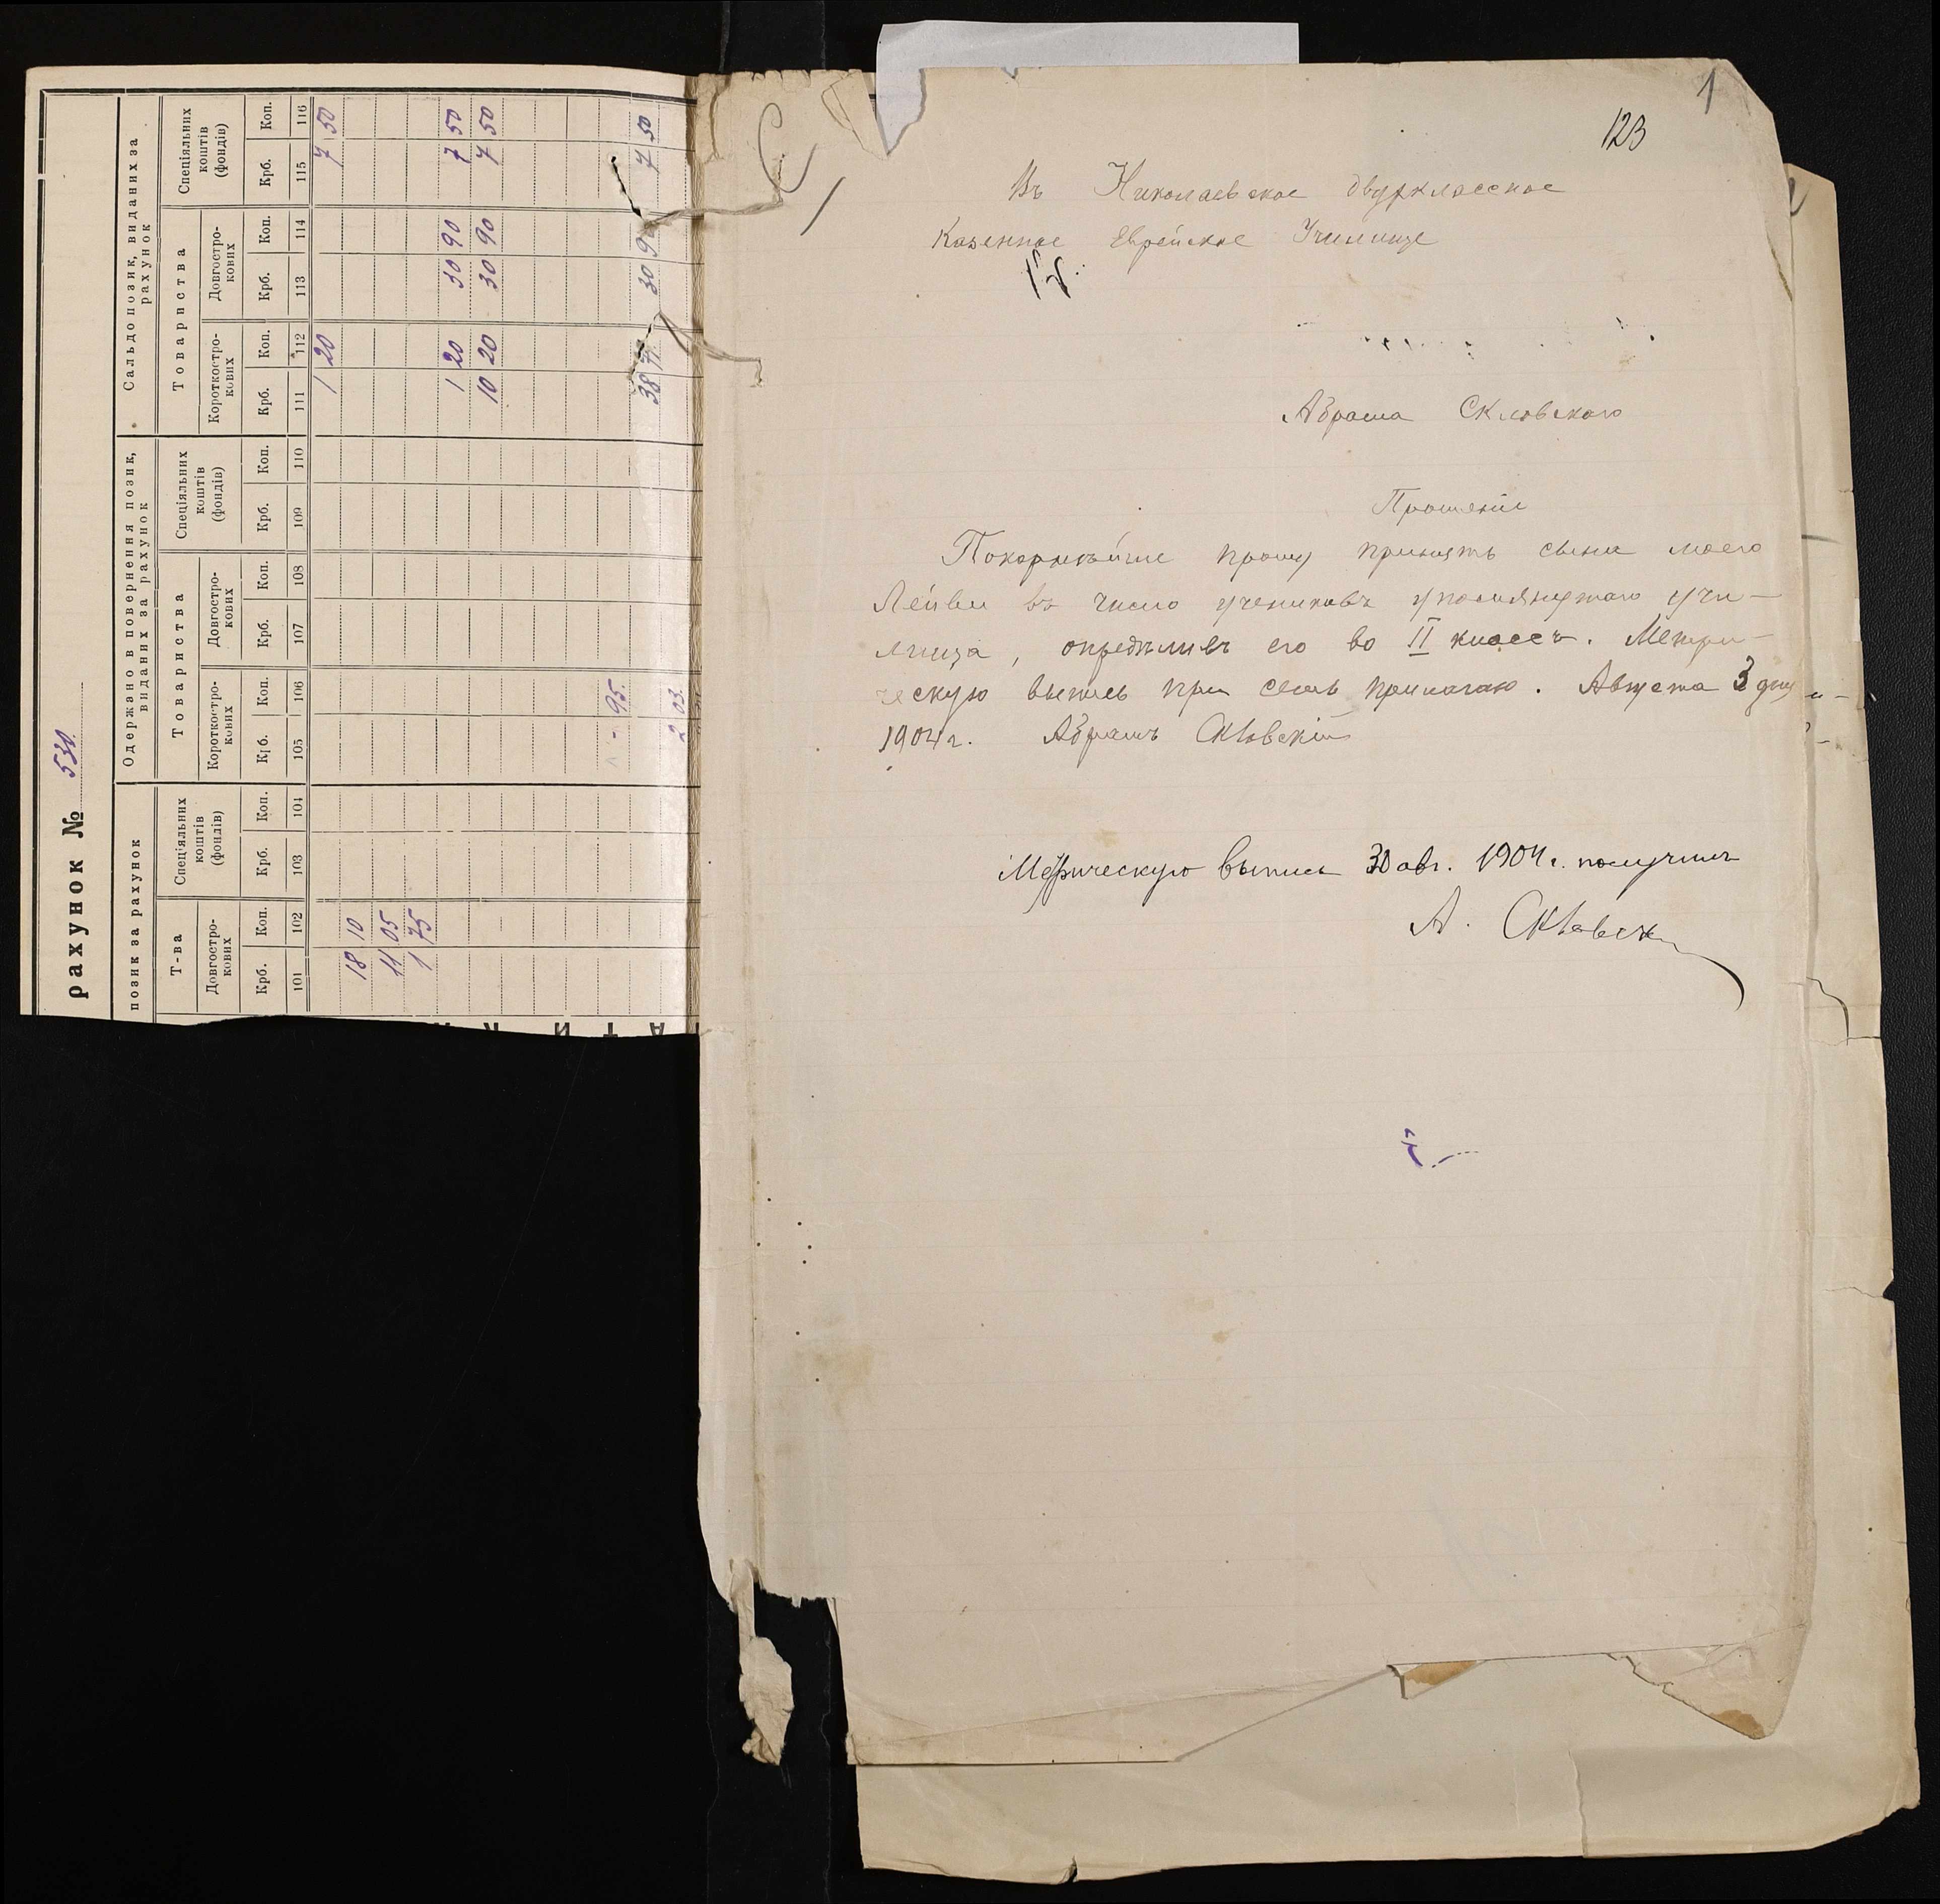 рахунок № 530
позик за рахунок
Одержано в повернення позик, виданих за рахунок
Сальдо позик, виданих за рахунок
Т-ва
Спеціяльних коштів (фондів)
Товариства
Спеціяльних коштів (фондів)
Товариства
Спеціяльних коштів (фондів)
Довгостро-кових
Короткостро-кових
Довгостро-кових
Короткостро-кових
Довгостро-кових
Крб. Коп. Крб. Коп. Крб. Коп. Крб. Коп. Крб. Коп. Крб. Коп. Крб. Коп. Крб. Коп.
101 102 103 104 105 106 107 108 109 110 111 112 113 114 115 116
1 20 7 50
18 10
11 05
1 75
1 20 30 90 7 50
10 20 30 90 7 50
95
38 71 30 90 7 50
2 03
1
123
Въ Николаевское двухклассное
Казенное Еврейское Училище
Абрама Скловскаго
Прошеніе
Покорнѣйше прошу принять сына моего
Лейви въ число учениковъ упомянутаго учи-
лища, опредѣливъ его во II классъ. Метри-
ческую выпись при семъ прилагаю. Августа 3 дня
1904 г. Абрамъ Скловскій
Метрическую выпись 30 авг. 1904 г. получилъ
А. Скловскій